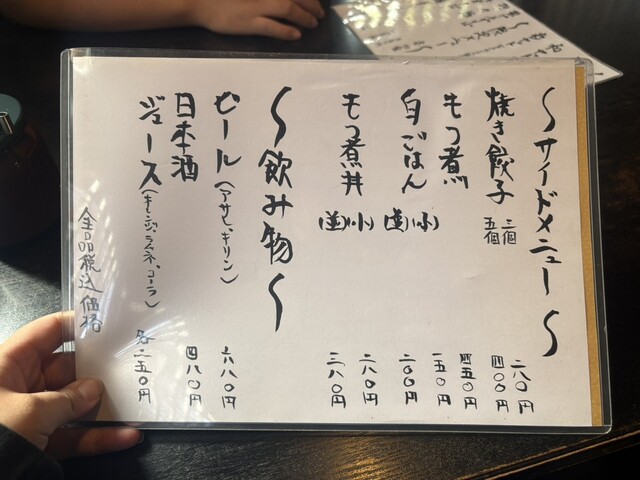 〜サイドメニュー〜
焼き餃子 三個 二八〇円
五個 四〇〇円
もつ煮 四五〇円
白ごはん (小) 一五〇円
(並) 二〇〇円
もつ煮丼 (小) 二八〇円
(並) 三八〇円
〜飲み物〜
ビール(アサヒ、キリン) 六八〇円
日本酒 四八〇円
ジュース(オレンジ、ラムネ、コーラ) 各二五〇円
全品税込価格